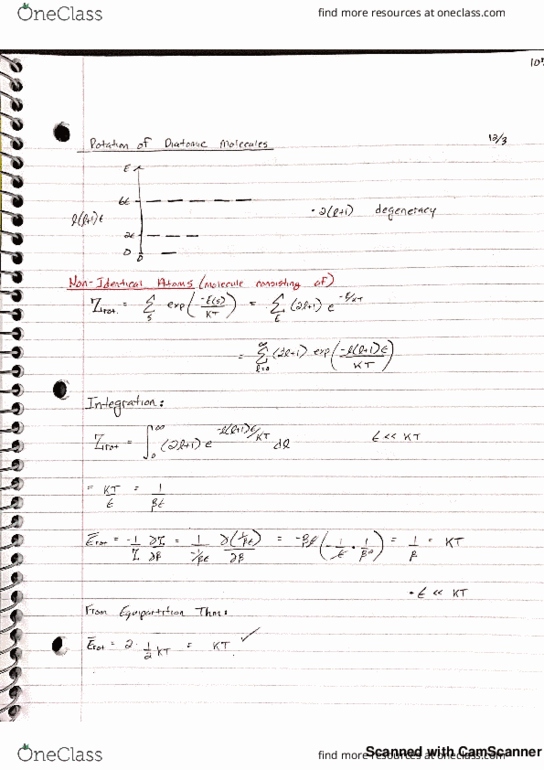 OneClass
find more resources at oneclass.com
12/3
Rotation of Diatomic Molecules
E
6ε
l(l+1)ε
2ε
0
• 2(l+1) degeneracy
Non-Identical Atoms (molecule consisting of)
Z_rot. = Σ_s exp(-ε(s)/KT) = Σ_E (2l+1) e^(-E/KT)
= Σ_(l=0)^∞ (2l+1) exp(-l(l+1)ε/KT)
Integration:
Z_rot = ∫_0^∞ (2l+1) e^(-l(l+1)ε/KT) dl ε << KT
= KT/ε = 1/βε
Ē_rot = -1/Z ∂Z/∂β = 1/(-1/βε) ∂(1/βε)/∂β = -βε(-1/ε • 1/β²) = 1/β = KT
• ε << KT
From Equipartition Thm:
Ē_rot = 2 · 1/2 KT = KT ✓
OneClass
find more resources at oneclass.com
Scanned with CamScanner